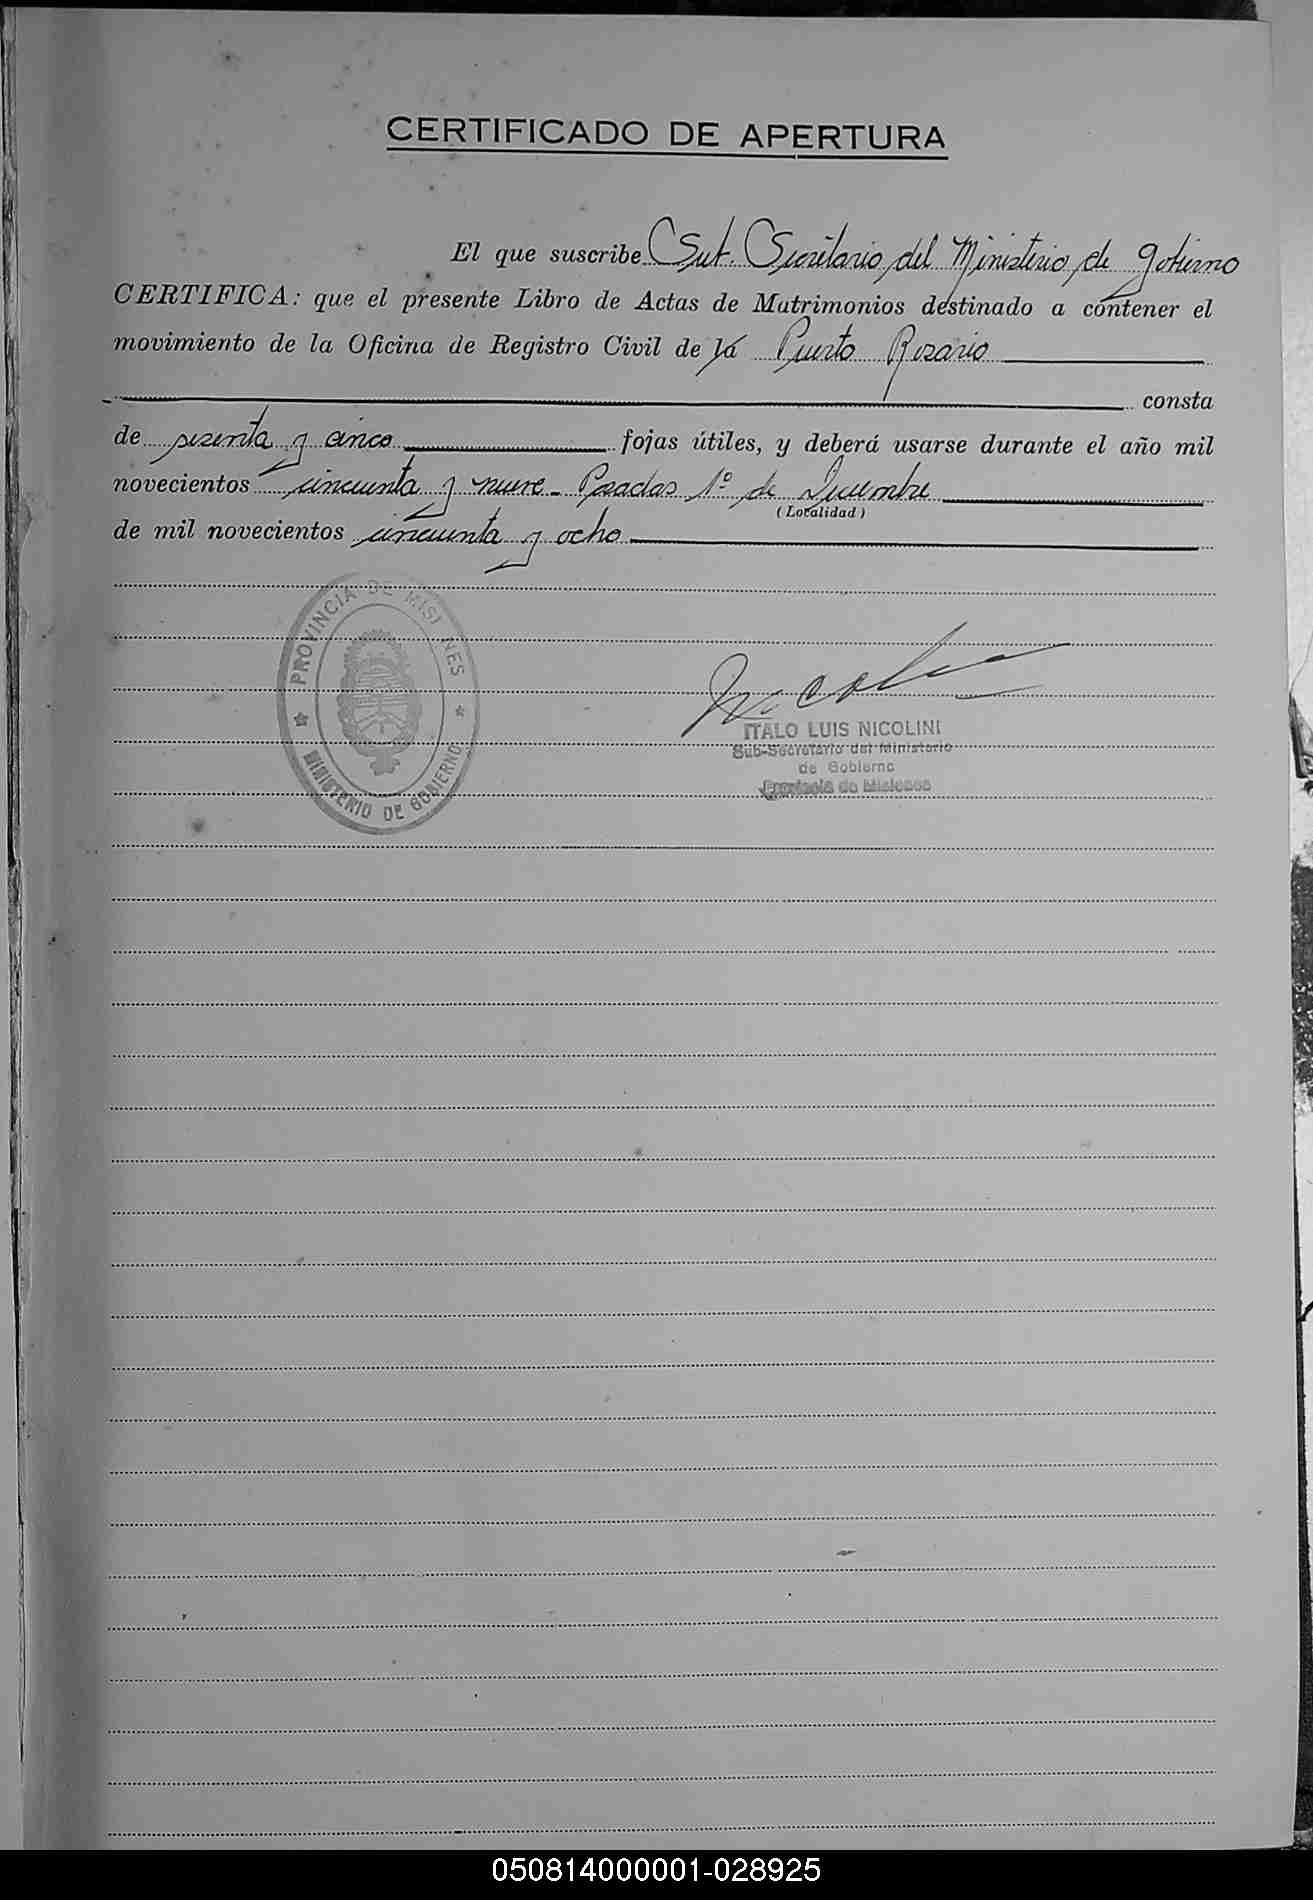 CERTIFICADO DE APERTURA
El que suscribe Sub. Secretario del Ministerio de Gobierno
CERTIFICA: que el presente Libro de Actas de Matrimonios destinado a contener el
movimiento de la Oficina de Registro Civil de la Puerto Rosario
consta
de sesenta y cinco fojas útiles, y deberá usarse durante el año mil
novecientos cincuenta y nueve - Posadas 1º de Diciembre
(Localidad)
de mil novecientos cincuenta y ocho
PROVINCIA DE MISIONES
MINISTERIO DE GOBIERNO
Nicolini
ITALO LUIS NICOLINI
Sub-Secretario del Ministerio
de Gobierno
Provincia de Misiones
050814000001-028925